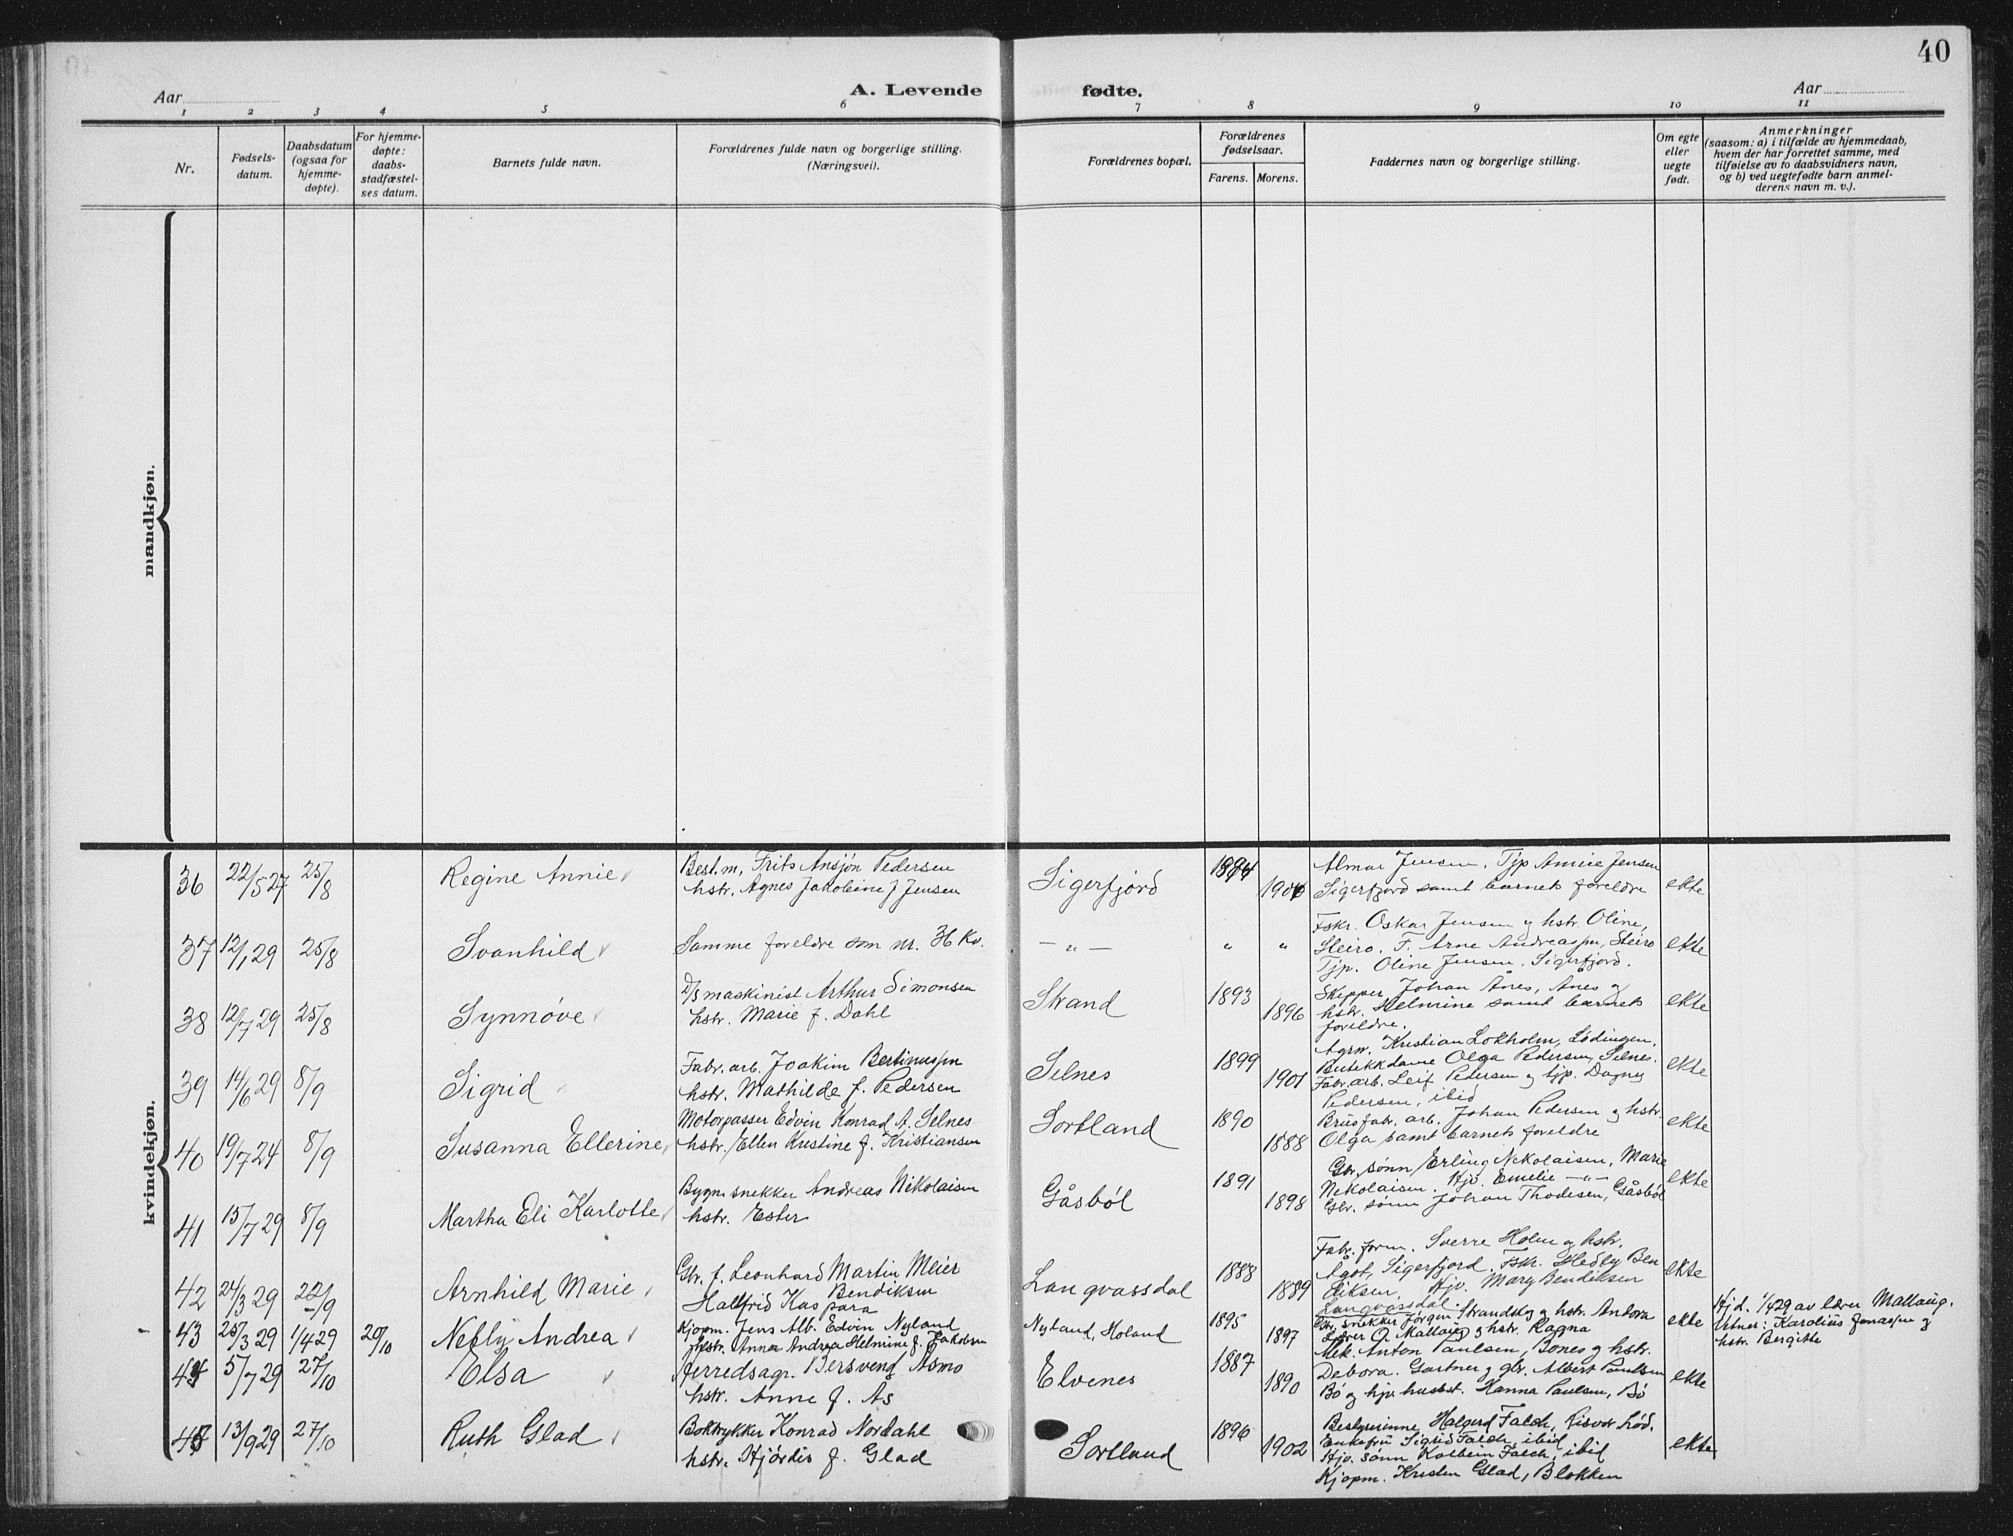 40
Aar
A. Levende
fødte.
Aar
1 2 3 4 5 6 7 8 9 10 11
Nr.
Fødsels-
datum.
Daabsdatum
(ogsaa for
hjemme-
døpte).
For hjemme-
døpte:
daabs-
stadfæstel-
ses datum.
Barnets fulde navn.
Forældrenes fulde navn og borgerlige stilling.
(Næringsvei).
Forældrenes bopæl.
Forældrenes
fødselsaar.
Farens. Morens.
Faddernes navn og borgerlige stilling.
Om egte
eller
uegte
født.
Anmerkninger
(saasom: a) i tilfælde av hjemmedaab,
hvem der har forrettet samme, med
tilføielse av to daabsvidners navn,
og b) ved uegtefødte barn anmel-
derens navn m. v.).
mandkjøn.
kvindekjøn.
36 22/5 27 25/8 Regine Annie
Best.m, Frits Ansjøn Pedersen
hstr. Agnes Jakobine f Jensen
Sigerfjord
Almar Jensen. Tjp Amie Jensen
Sigerfjord samt barnets foreldre
ekte
37 12/1 29 25/8 Svanhild
Samme foreldre som nr. 36 Kv.
— " — " "
Fskr. Oskar Jensen og hstr Oline,
Steiro. F. Arne Andreassen, Steiro
Tjp. Oline Jensen, Sigerfjord.
ekte
38 12/7 29 25/8 Synnøve
D/s maskinist Arthur Simonsen
hstr. Marie f. Dahl
Strand 1893 1896
Skipper Johan Ånes, Ånes og
hstr. Helmine samt barnets
foreldre.
ekte
39 14/6 29 8/9 Sigrid
Fabr. arb. Joakim Bertinussen
hstr. Mathilde f. Pedersen
Selnes 1899 1901
Agrn. Kristian Lokholm, Lødingen.
Butikkdame Olga Pedersen, Selnes.
Fabr. arb. Leif Pedersen og tjp. Dagny
Pedersen, ibid
ekte
40 19/7 24 8/9 Susanna Ellerine
Motorpasser Edvin Konrad A. Selnes
hstr. Ellen Kristine f. Kristiansen
Sortland 1890 1888
Brusfabr. arb. Johan Pedersen og hstr.
Olga samt barnets foreldre
ekte
41 15/7 29 8/9 Martha Eli Karlotte
Bygn snekker Andreas Nikolaisen
hstr. Ester
Gåsbøl 1891 1898
Gbr. sønn Erling Nikolaisen, Marie
Nikolaisen. Hjv. Emelie — " —
Gbr. sønn Johan Thodesen, Gåsbøl
ekte
42 24/3 29 22/9 Arnhild Marie
Gbr. f. Leonhard Martin Meier
Bendiksen
Hallfrid Kaspara
Langvassdal 1888 1889
Fabr. form. Sverre Holm og hstr.
Ågot, Sigerfjord. Fskr. Hedly Ben
diksen, Hjv. Mary Bendiksen
Langvassdal.
ekte
43 25/3 29 1/4 29 20/10 Nelly Andrea
Kjøpm. Jens Alb. Edvin Nyland
hstr. Anna Andrea Helmine f. Jakobsen
Nyland, Holand 1895 1897
Gbr. snekker Jørgen Strandskog og hstr. Andora
Lærer O. Mallaug og hstr. Ragna
ekte
Hjd. 1/4 29 av lærer Mallaug.
Vitner: Karolius Jonassen og
hstr. Bergitte
44 5/7 29 27/10 Elsa
Herredsagr. Bersveng Åsmo
hstr. Anne f. As
Elvenes 1887 1890
Mek. Anton Paulsen, Bones og hstr.
Debora. Gartner og gbr. Albert Paulsen
Bø og hjv. husbst. Hanna Paulsen, Bø
ekte
45 13/9 29 27/10 Ruth Glad
Boktrykker Konrad Nordahl
hstr. Hjørdis f. Glad
Sortland 1896 1902
Bestyrerinne Halgerd Falch, Risvær Lød.
Enkefru Sigrid Falch, ibid
Hjv. sønn Kolbein Falch, ibid
Kjøpm. Kristen Glad, Blokken
ekte